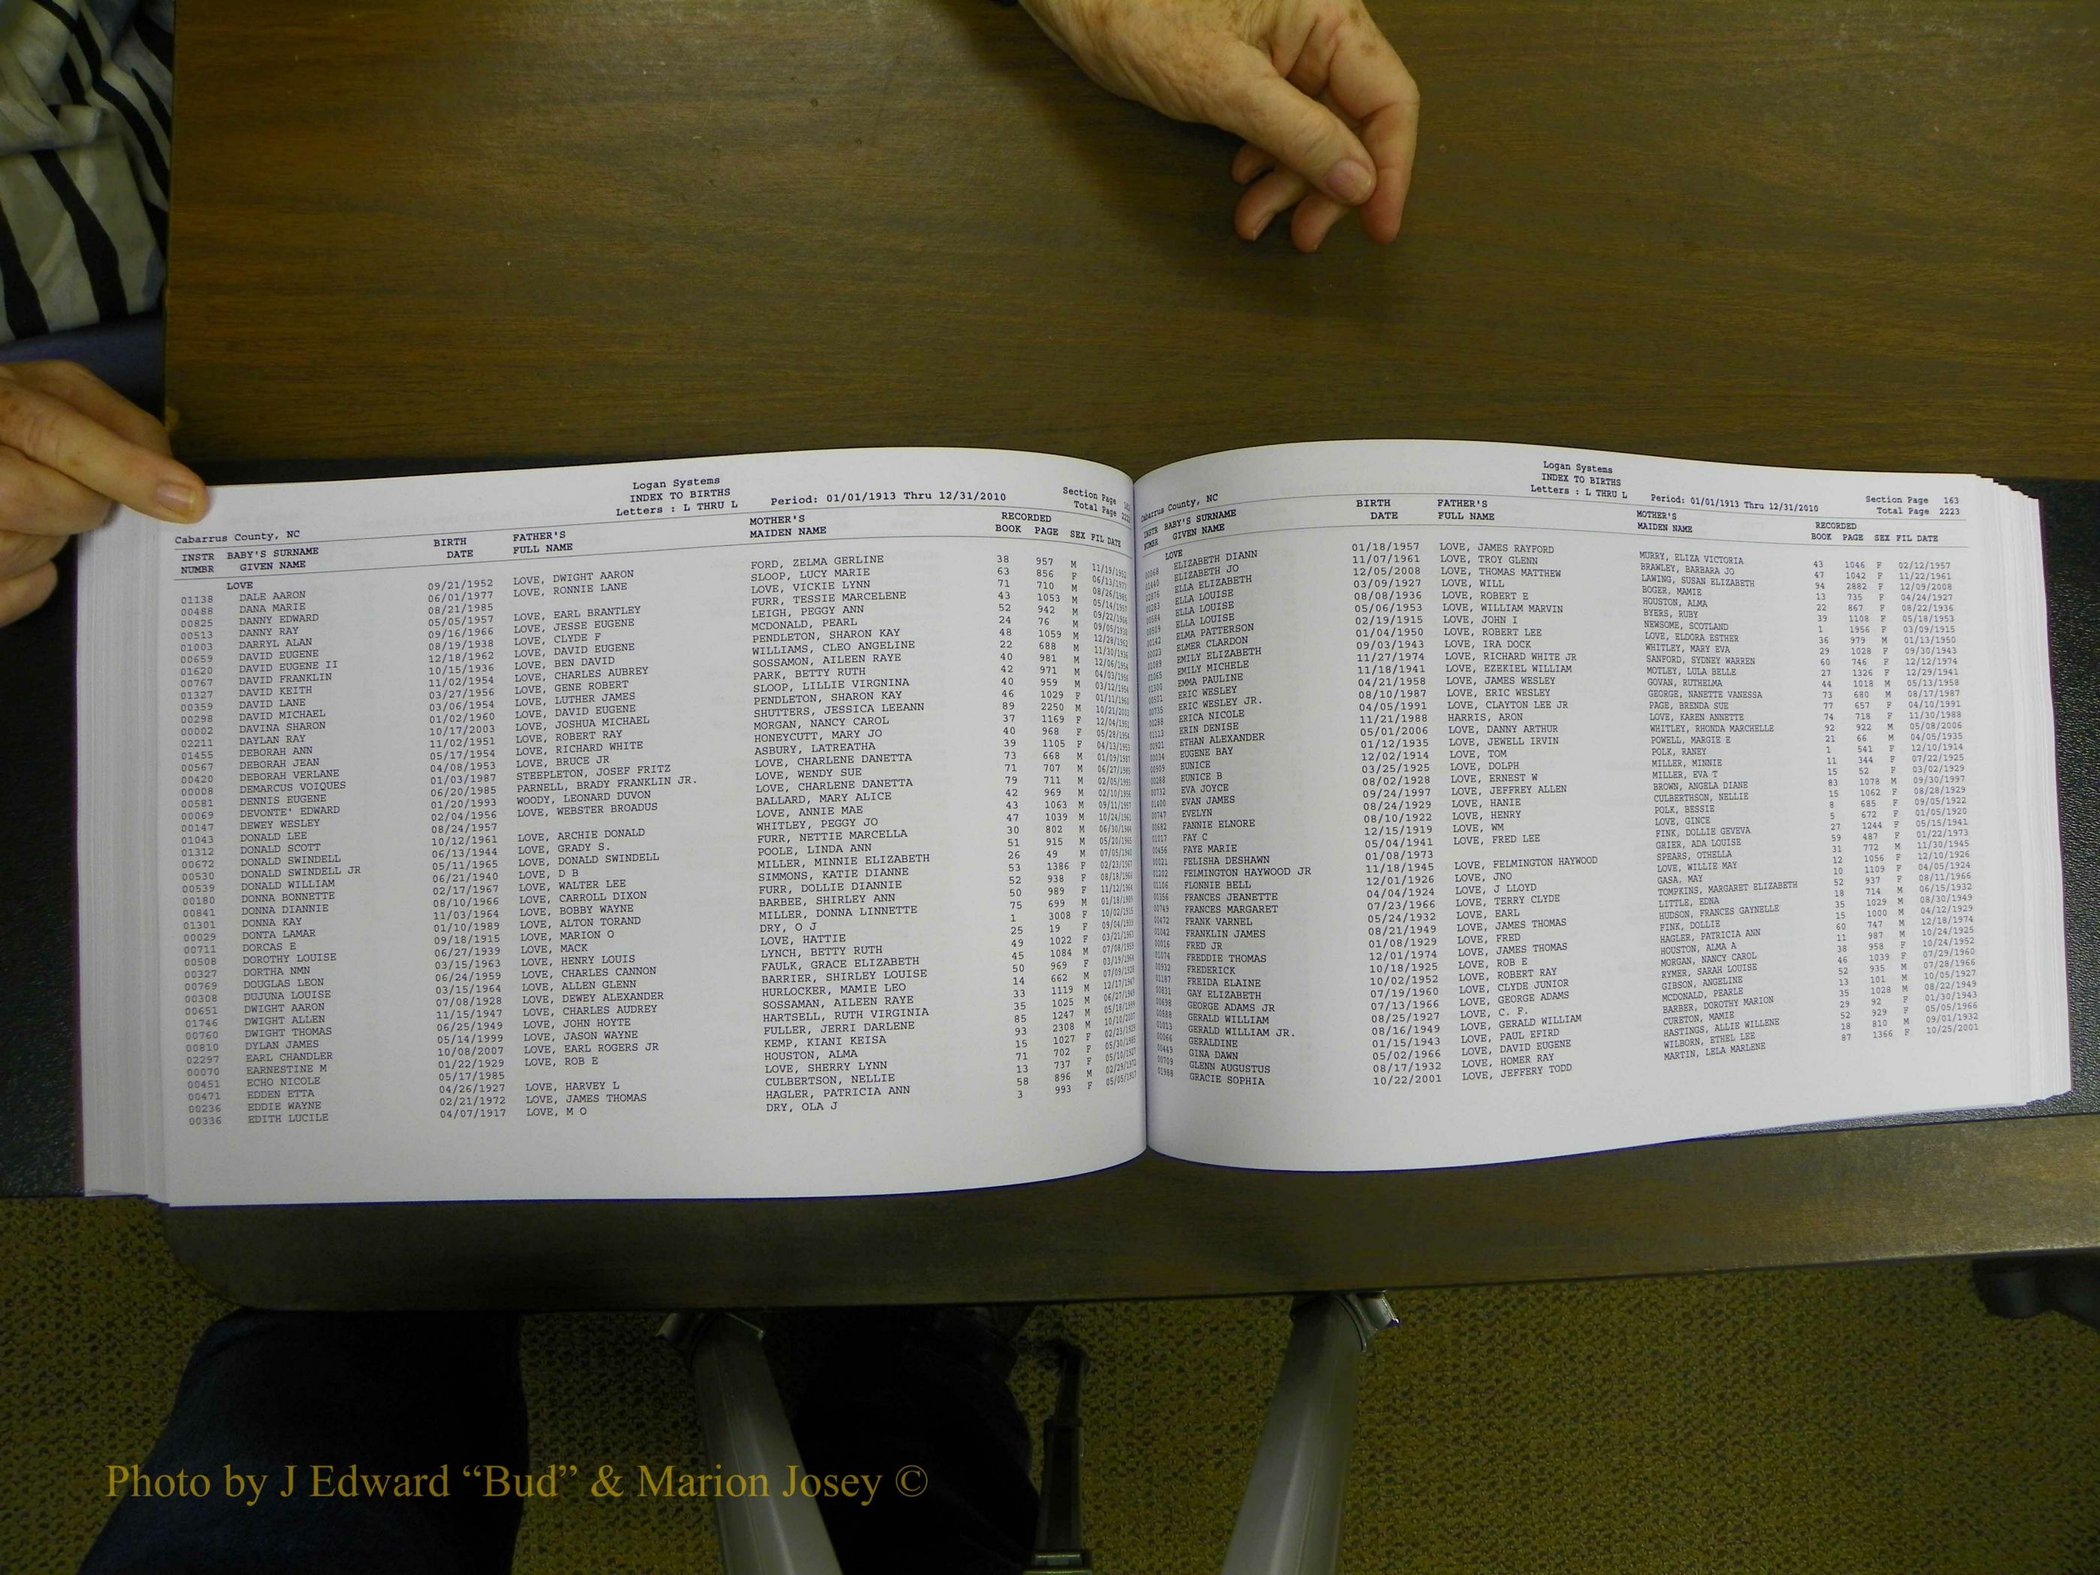 Logan Systems
INDEX TO BIRTHS
Letters : L THRU L
Period: 01/01/1913 Thru 12/31/2010
Section Page
Total Page
Cabarrus County, NC
INSTR BABY'S SURNAME BIRTH FATHER'S MOTHER'S RECORDED
NUMBR GIVEN NAME DATE FULL NAME MAIDEN NAME BOOK PAGE SEX FIL DATE
LOVE
01138 DALE AARON 09/21/1952 LOVE, DWIGHT AARON FORD, ZELMA GERLINE 38 957 M 11/19/1952
00488 DANA MARIE 06/01/1977 LOVE, RONNIE LANE SLOOP, LUCY MARIE 63 856 F 06/13/1977
00825 DANNY EDWARD 08/21/1985 LOVE, VICKIE LYNN 71 710 M 08/26/1985
00513 DANNY RAY 05/05/1957 LOVE, EARL BRANTLEY FURR, TESSIE MARCELENE 43 1053 M 05/14/1957
01003 DARRYL ALAN 09/16/1966 LOVE, JESSE EUGENE LEIGH, PEGGY ANN 52 942 M 09/22/1966
00659 DAVID EUGENE 08/19/1938 LOVE, CLYDE F MCDONALD, PEARL 24 76 M 09/05/1938
01620 DAVID EUGENE II 12/18/1962 LOVE, DAVID EUGENE PENDLETON, SHARON KAY 48 1059 M 12/29/1962
00767 DAVID FRANKLIN 10/15/1936 LOVE, BEN DAVID WILLIAMS, CLEO ANGELINE 22 688 M 11/30/1936
01327 DAVID KEITH 11/02/1954 LOVE, CHARLES AUBREY SOSSAMON, AILEEN RAYE 40 981 M 12/06/1954
00359 DAVID LANE 03/27/1956 LOVE, GENE ROBERT PARK, BETTY RUTH 42 971 M 04/03/1956
00298 DAVID MICHAEL 03/06/1954 LOVE, LUTHER JAMES SLOOP, LILLIE VIRGNINA 40 959 M 03/12/1954
00002 DAVINA SHARON 01/02/1960 LOVE, DAVID EUGENE PENDLETON, SHARON KAY 46 1029 F 01/11/1960
02211 DAYLAN RAY 10/17/2003 LOVE, JOSHUA MICHAEL SHUTTERS, JESSICA LEEANN 89 2250 M 10/21/2003
01455 DEBORAH ANN 11/02/1951 LOVE, ROBERT RAY MORGAN, NANCY CAROL 37 1169 F 12/04/1951
00567 DEBORAH JEAN 05/17/1954 LOVE, RICHARD WHITE HONEYCUTT, MARY JO 40 968 F 05/28/1954
00420 DEBORAH VERLANE 04/08/1953 LOVE, BRUCE JR ASBURY, LATREATHA 39 1105 F 04/13/1953
00008 DEMARCUS VOIQUES 01/03/1987 STEEPLETON, JOSEF FRITZ LOVE, CHARLENE DANETTA 73 668 M 01/09/1987
00581 DENNIS EUGENE 06/20/1985 PARNELL, BRADY FRANKLIN JR. LOVE, WENDY SUE 71 707 M 06/27/1985
00069 DEVONTE' EDWARD 01/20/1993 WOODY, LEONARD DUVON LOVE, CHARLENE DANETTA 79 711 M 02/05/1993
00147 DEWEY WESLEY 02/04/1956 LOVE, WEBSTER BROADUS BALLARD, MARY ALICE 42 969 M 02/10/1956
01043 DONALD LEE 08/24/1957 LOVE, ANNIE MAE 43 1063 M 09/11/1957
01312 DONALD SCOTT 10/12/1961 LOVE, ARCHIE DONALD WHITLEY, PEGGY JO 47 1039 M 10/24/1961
00672 DONALD SWINDELL 06/13/1944 LOVE, GRADY S. FURR, NETTIE MARCELLA 30 802 M 06/30/1944
00530 DONALD SWINDELL JR 05/11/1965 LOVE, DONALD SWINDELL POOLE, LINDA ANN 51 915 M 05/20/1965
00539 DONALD WILLIAM 06/21/1940 LOVE, D B MILLER, MINNIE ELIZABETH 26 49 M 07/05/1940
00180 DONNA BONNETTE 02/17/1967 LOVE, WALTER LEE SIMMONS, KATIE DIANNE 53 1386 F 02/23/1967
00841 DONNA DIANNIE 08/10/1966 LOVE, CARROLL DIXON FURR, DOLLIE DIANNIE 52 938 F 08/18/1966
01301 DONNA KAY 11/03/1964 LOVE, BOBBY WAYNE BARBEE, SHIRLEY ANN 50 989 F 11/12/1964
00029 DONTA LAMAR 01/10/1989 LOVE, ALTON TORAND MILLER, DONNA LINNETTE 75 699 M 01/18/1989
00711 DORCAS E 09/18/1915 LOVE, MARION O DRY, O J 1 3008 F 10/02/1915
00508 DOROTHY LOUISE 06/27/1939 LOVE, MACK LOVE, HATTIE 25 19 F 09/04/1939
00327 DORTHA NMN 03/15/1963 LOVE, HENRY LOUIS LYNCH, BETTY RUTH 49 1022 F 03/21/1963
00769 DOUGLAS LEON 06/24/1959 LOVE, CHARLES CANNON FAULK, GRACE ELIZABETH 45 1084 M 07/08/1959
00308 DUJUNA LOUISE 03/15/1964 LOVE, ALLEN GLENN BARRIER, SHIRLEY LOUISE 50 969 F 03/19/1964
00651 DWIGHT AARON 07/08/1928 LOVE, DEWEY ALEXANDER HURLOCKER, MAMIE LEO 14 662 M 07/09/1928
01746 DWIGHT ALLEN 11/15/1947 LOVE, CHARLES AUDREY SOSSAMAN, AILEEN RAYE 33 1119 M 12/17/1947
00760 DWIGHT THOMAS 06/25/1949 LOVE, JOHN HOYTE HARTSELL, RUTH VIRGINIA 35 1025 M 06/27/1949
00810 DYLAN JAMES 05/14/1999 LOVE, JASON WAYNE FULLER, JERRI DARLENE 85 1247 M 05/18/1999
02297 EARL CHANDLER 10/08/2007 LOVE, EARL ROGERS JR KEMP, KIANI KEISA 93 2308 M 10/10/2007
00070 EARNESTINE M 01/22/1929 LOVE, ROB E HOUSTON, ALMA 15 1027 F 02/23/1929
00451 ECHO NICOLE 05/17/1985 LOVE, SHERRY LYNN 71 702 F 05/30/1985
00471 EDDEN ETTA 04/26/1927 LOVE, HARVEY L CULBERTSON, NELLIE 13 737 F 05/10/1927
00236 EDDIE WAYNE 02/21/1972 LOVE, JAMES THOMAS HAGLER, PATRICIA ANN 58 896 M 02/29/1972
00336 EDITH LUCILE 04/07/1917 LOVE, M O DRY, OLA J 3 993 F 05/05/1917
Logan Systems
INDEX TO BIRTHS
Letters : L THRU L
Period: 01/01/1913 Thru 12/31/2010
Section Page 163
Total Page 2223
Cabarrus County, NC
INSTR BABY'S SURNAME BIRTH FATHER'S MOTHER'S RECORDED
NUMBR GIVEN NAME DATE FULL NAME MAIDEN NAME BOOK PAGE SEX FIL DATE
LOVE
00068 ELIZABETH DIANN 01/18/1957 LOVE, JAMES RAYFORD MURRY, ELIZA VICTORIA 43 1046 F 02/12/1957
01440 ELIZABETH JO 11/07/1961 LOVE, TROY GLENN BRAWLEY, BARBARA JO 47 1042 F 11/22/1961
02876 ELLA ELIZABETH 12/05/2008 LOVE, THOMAS MATTHEW LAWING, SUSAN ELIZABETH 94 2882 F 12/09/2008
00283 ELLA LOUISE 03/09/1927 LOVE, WILL BOGER, MAMIE 13 735 F 04/24/1927
00584 ELLA LOUISE 08/08/1936 LOVE, ROBERT E HOUSTON, ALMA 22 867 F 08/22/1936
00509 ELLA LOUISE 05/06/1953 LOVE, WILLIAM MARVIN BYERS, RUBY 39 1108 F 05/18/1953
00142 ELMA PATTERSON 02/19/1915 LOVE, JOHN I NEWSOME, SCOTLAND 1 1956 F 03/09/1915
00023 ELMER CLARDON 01/04/1950 LOVE, ROBERT LEE LOVE, ELDORA ESTHER 36 979 M 01/13/1950
01089 EMILY ELIZABETH 09/03/1943 LOVE, IRA DOCK WHITLEY, MARY EVA 29 1028 F 09/30/1943
01065 EMILY MICHELE 11/27/1974 LOVE, RICHARD WHITE JR SANFORD, SYDNEY WARREN 60 746 F 12/12/1974
01300 EMMA PAULINE 11/18/1941 LOVE, EZEKIEL WILLIAM MOTLEY, LULA BELLE 27 1326 F 12/29/1941
00501 ERIC WESLEY 04/21/1958 LOVE, JAMES WESLEY GOVAN, RUTHELMA 44 1018 M 05/13/1958
00735 ERIC WESLEY JR. 08/10/1987 LOVE, ERIC WESLEY GEORGE, NANETTE VANESSA 73 680 M 08/17/1987
00298 ERICA NICOLE 04/05/1991 LOVE, CLAYTON LEE JR PAGE, BRENDA SUE 77 657 F 04/10/1991
01113 ERIN DENISE 11/21/1988 HARRIS, ARON LOVE, KAREN ANNETTE 74 718 F 11/30/1988
00921 ETHAN ALEXANDER 05/01/2006 LOVE, DANNY ARTHUR WHITLEY, RHONDA MARCHELLE 92 922 M 05/08/2006
00034 EUGENE BAY 01/12/1935 LOVE, JEWELL IRVIN POWELL, MARGIE E 21 66 M 04/05/1935
00909 EUNICE 12/02/1914 LOVE, TOM POLK, RANEY 1 541 F 12/10/1914
00288 EUNICE B 03/25/1925 LOVE, DOLPH MILLER, MINNIE 11 344 F 07/22/1925
00732 EVA JOYCE 08/02/1928 LOVE, ERNEST W MILLER, EVA T 15 52 F 03/02/1929
01400 EVAN JAMES 09/24/1997 LOVE, JEFFREY ALLEN BROWN, ANGELA DIANE 83 1078 M 09/30/1997
00747 EVELYN 08/24/1929 LOVE, HANIE CULBERTHSON, NELLIE 15 1062 F 08/28/1929
00682 FANNIE ELNORE 08/10/1922 LOVE, HENRY POLK, BESSIE 8 685 F 09/05/1922
01017 FAY C 12/15/1919 LOVE, WM LOVE, GINCE 5 672 F 01/05/1920
00456 FAYE MARIE 05/04/1941 LOVE, FRED LEE FINK, DOLLIE GEVEVA 27 1244 F 05/15/1941
00021 FELISHA DESHAWN 01/08/1973 GRIER, ADA LOUISE 59 487 F 01/22/1973
01202 FELMINGTON HAYWOOD JR 11/18/1945 LOVE, FELMINGTON HAYWOOD SPEARS, OTHELLA 31 772 M 11/30/1945
01106 FLONNIE BELL 12/01/1926 LOVE, JNO LOVE, WILLIE MAY 12 1056 F 12/10/1926
00356 FRANCES JEANETTE 04/04/1924 LOVE, J LLOYD GASA, MAY 10 1109 F 04/05/1924
00749 FRANCES MARGARET 07/23/1966 LOVE, TERRY CLYDE TOMPKINS, MARGARET ELIZABETH 52 937 F 08/11/1966
00472 FRANK VARNEL 05/24/1932 LOVE, EARL LITTLE, EDNA 18 714 M 06/15/1932
01042 FRANKLIN JAMES 08/21/1949 LOVE, JAMES THOMAS HUDSON, FRANCES GAYNELLE 35 1029 M 08/30/1949
00016 FRED JR 01/08/1929 LOVE, FRED FINK, DOLLIE 15 1000 M 04/12/1929
01074 FREDDIE THOMAS 12/01/1974 LOVE, JAMES THOMAS HAGLER, PATRICIA ANN 60 747 M 12/18/1974
00932 FREDERICK 10/18/1925 LOVE, ROB E HOUSTON, ALMA A 11 987 M 10/24/1925
01187 FREIDA ELAINE 10/02/1952 LOVE, ROBERT RAY MORGAN, NANCY CAROL 38 958 F 10/24/1952
00831 GAY ELIZABETH 07/19/1960 LOVE, CLYDE JUNIOR RYMER, SARAH LOUISE 46 1039 F 07/29/1960
00698 GEORGE ADAMS JR 07/13/1966 LOVE, GEORGE ADAMS GIBSON, ANGELINE 52 935 M 07/28/1966
00888 GERALD WILLIAM 08/25/1927 LOVE, C. F. MCDONALD, PEARLE 13 101 M 10/05/1927
01013 GERALD WILLIAM JR. 08/16/1949 LOVE, GERALD WILLIAM BARBER, DOROTHY MARION 35 1028 M 08/22/1949
00066 GERALDINE 01/15/1943 LOVE, PAUL EFIRD CURETON, MAMIE 29 92 F 01/30/1943
00449 GINA DAWN 05/02/1966 LOVE, DAVID EUGENE HASTINGS, ALLIE WILLENE 52 929 F 05/05/1966
00709 GLENN AUGUSTUS 08/17/1932 LOVE, HOMER RAY WILBORN, ETHEL LEE 18 810 M 09/01/1932
01988 GRACIE SOPHIA 10/22/2001 LOVE, JEFFERY TODD MARTIN, LELA MARLENE 87 1366 F 10/25/2001
Photo by J Edward “Bud” & Marion Josey ©